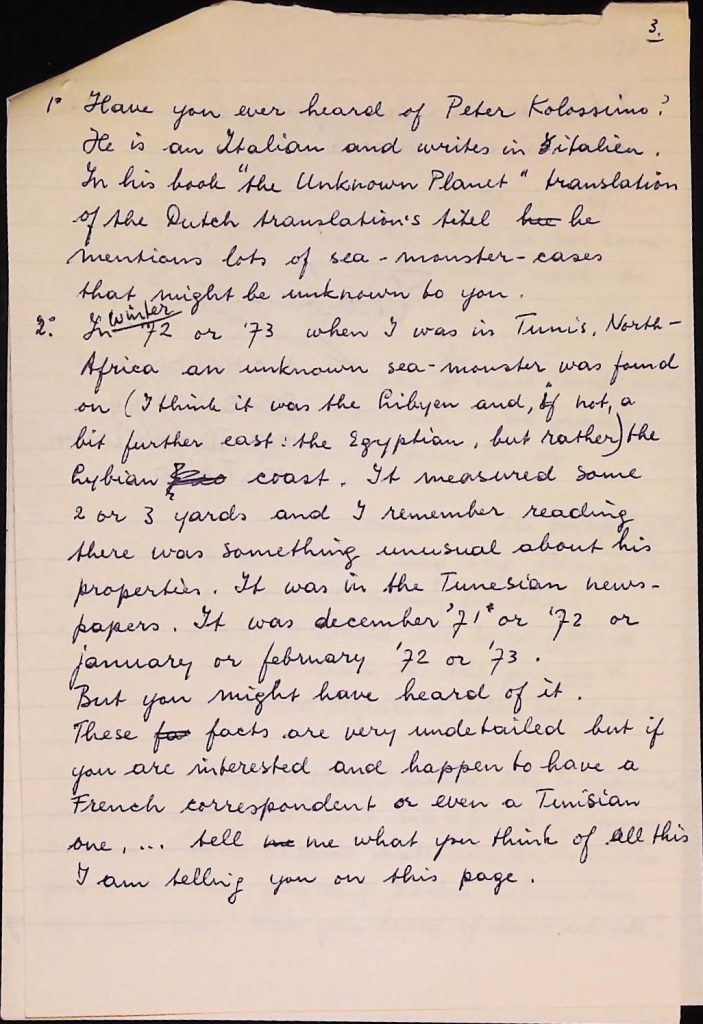 3.
1° Have you ever heard of Peter Kolossimo?
He is an Italian and writes in italien.
In his book "the Unknown Planet" translation
of the Dutch translation's titel he
mentions lots of sea-monster-cases
that might be unknown to you.
2° In winter '72 or '73 when I was in Tunis, North-
Africa an unknown sea-monster was found
on (I think it was the Libyen and, if not, a
bit further east: the Egyptian, but rather) the
Lybian coast. It measured some
2 or 3 yards and I remember reading
there was something unusual about his
properties. It was in the Tunesian news-
papers. It was december '71 or '72 or
january or february '72 or '73.
But you might have heard of it.
These facts are very undetailed but if
you are interested and happen to have a
French correspondent or even a Tunisian
one, ... tell me what you think of all this
I am telling you on this page.